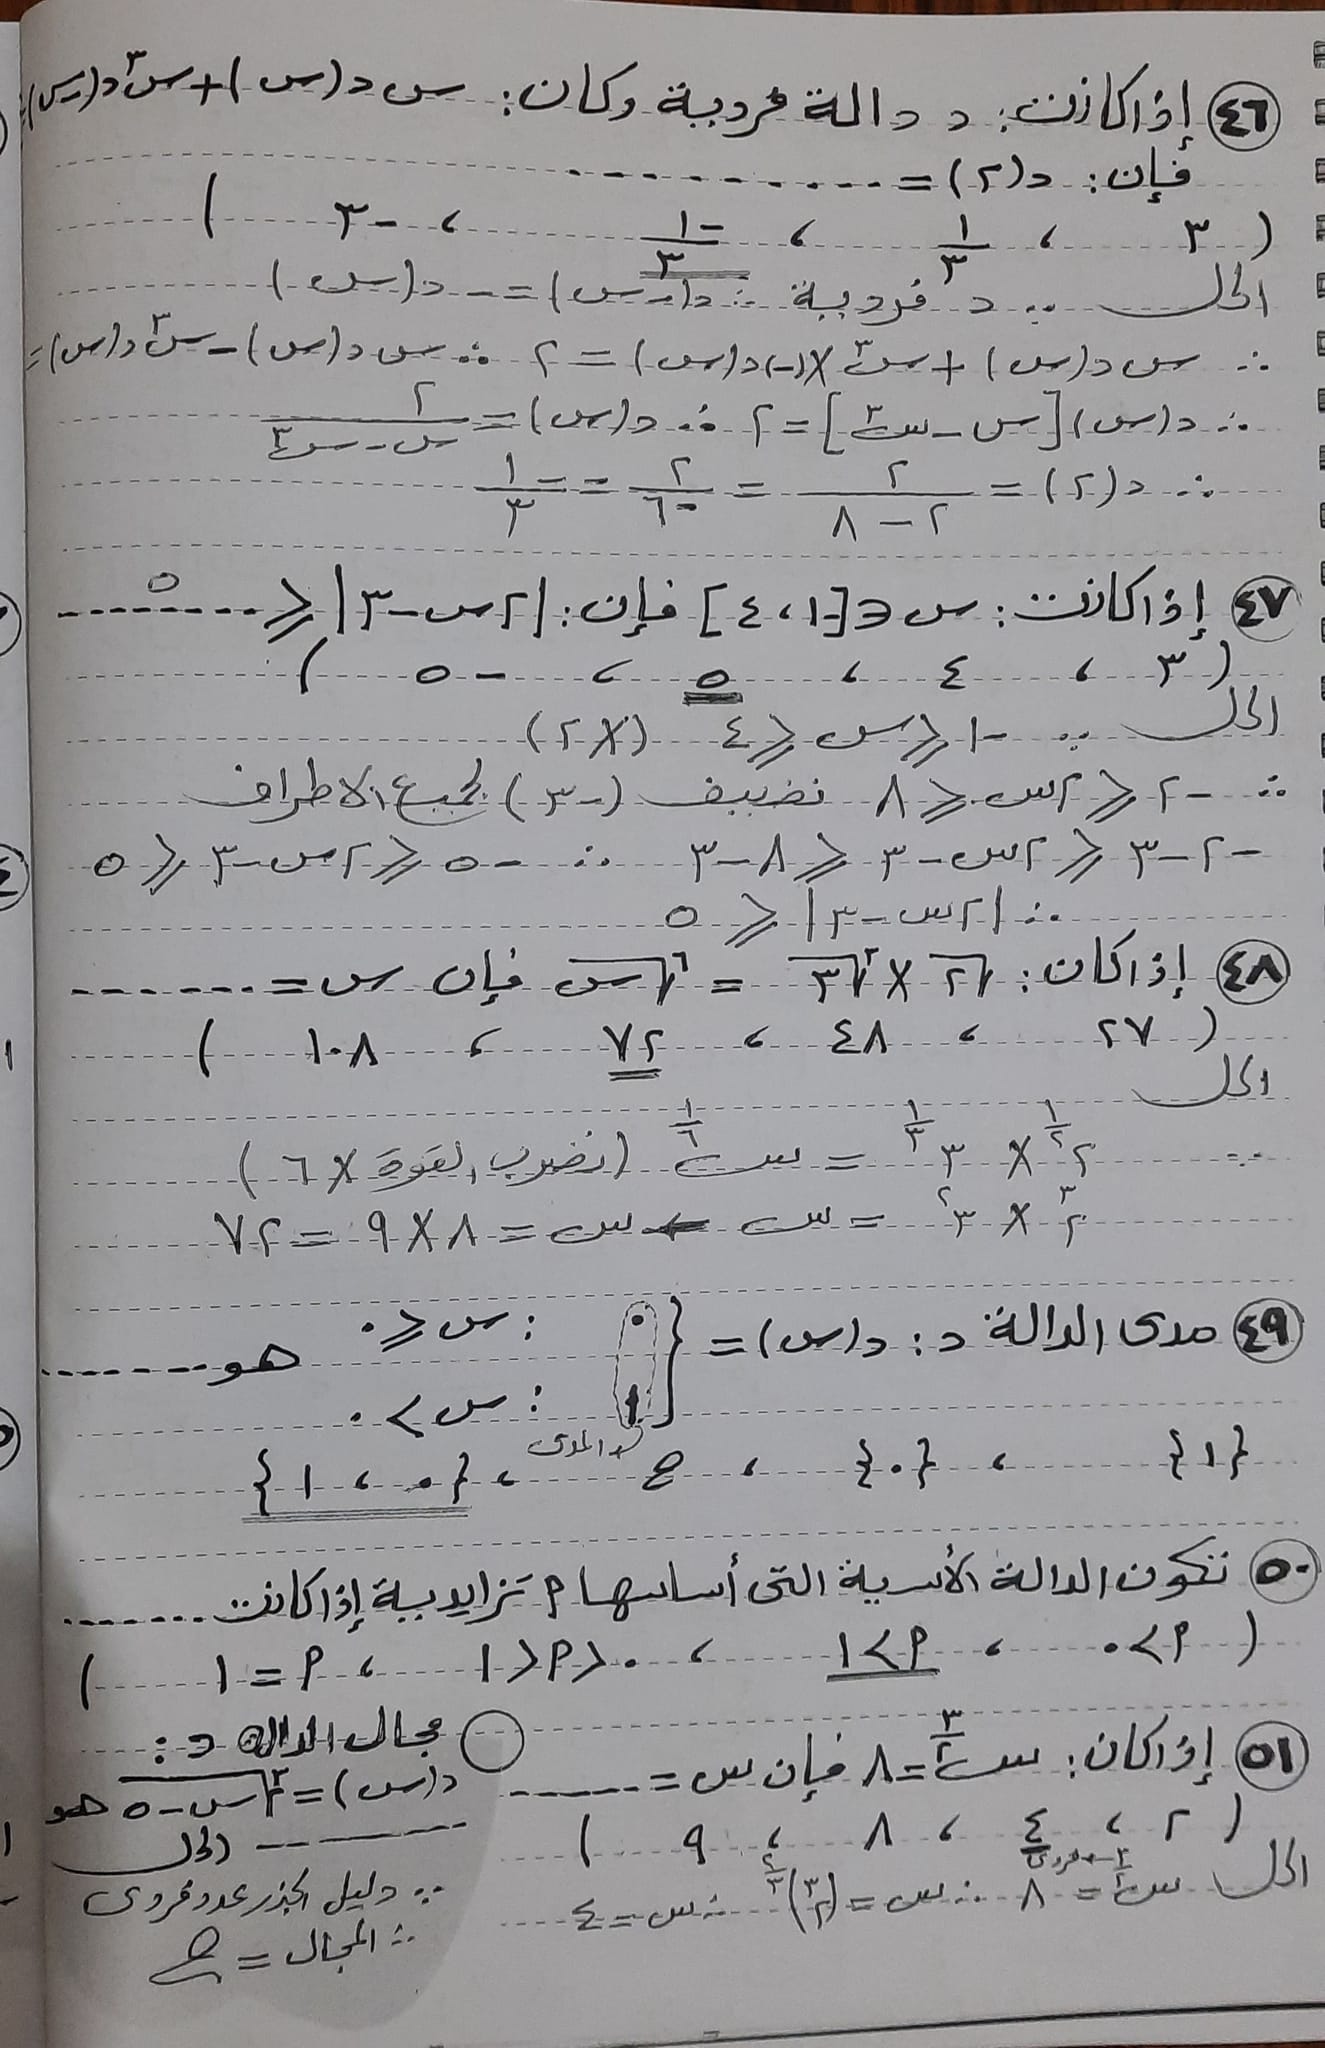 ٤٦ إذا كانت: د دالة فردية وكان: س د(س) + س٣ د(-س) =
فإن: د(٢) = ...........
( ٣ ، ١/٣ ، -١/٣ ، -٣ )
الحل ∵ د فردية ∴ د(-س) = - د(س)
∴ س د(س) + س٣ × (-١) د(س) = ٢ ∴ س د(س) - س٣ د(س) =
∴ د(س) [س - س٣] = ٢ ∴ د(س) = ٢/(س - س٣)
∴ د(٢) = ٢/(٢ - ٨) = ٢/-٦ = -١/٣
٤٧ إذا كانت: س ∈ [-١، ٤] فإن: |٢س - ٣| ≤ ....٥....
( ٣ ، ٤ ، ٥ ، -٥ )
الحل ∵ -١ ≤ س ≤ ٤ (×٢)
∴ -٢ ≤ ٢س ≤ ٨ نضيف (-٣) لجميع الاطراف
-٢-٣ ≤ ٢س-٣ ≤ ٨-٣ ∴ -٥ ≤ ٢س-٣ ≤ ٥
∴ |٢س-٣| ≤ ٥
٤٨ إذا كان: √٢ × ∛٣ = ⁶√س فإن س = .......
( ٢٧ ، ٤٨ ، ٧٢ ، ١٠٨ )
الحل
∵ ٢^(١/٢) × ٣^(١/٣) = س^(١/٦) (نضرب القوة × ٦)
٢^٣ × ٣^٢ = س ← س = ٨ × ٩ = ٧٢
٤٩ مدى الدالة د: د(س) = { ٠ : س ≥ ٠ هو .......
١ : س < ٠
المدى
{١} ، {٠} ، ح ، {٠ ، ١}
٥٠ تكون الدالة الأسية التى أساسها م تزايدية إذا كانت .......
( م > ٠ ، م > ١ ، ٠ < م < ١ ، م = ١ )
٥١ إذا كان: س^(٣/٢) = ٨ فإن س = ......
( ٢ ، ٤ ، ٨ ، ٩ )
الحل س^(٣/٢) = ٨ ∴ س = (٢^٣)^(٢/٣) ∴ س = ٤
٣ ← فردى
مجال الدالة د:
د(س) = ∛(س - ٥) هو
.......... الحل
∵ دليل الجذر عدد فردى
∴ المجال = ح